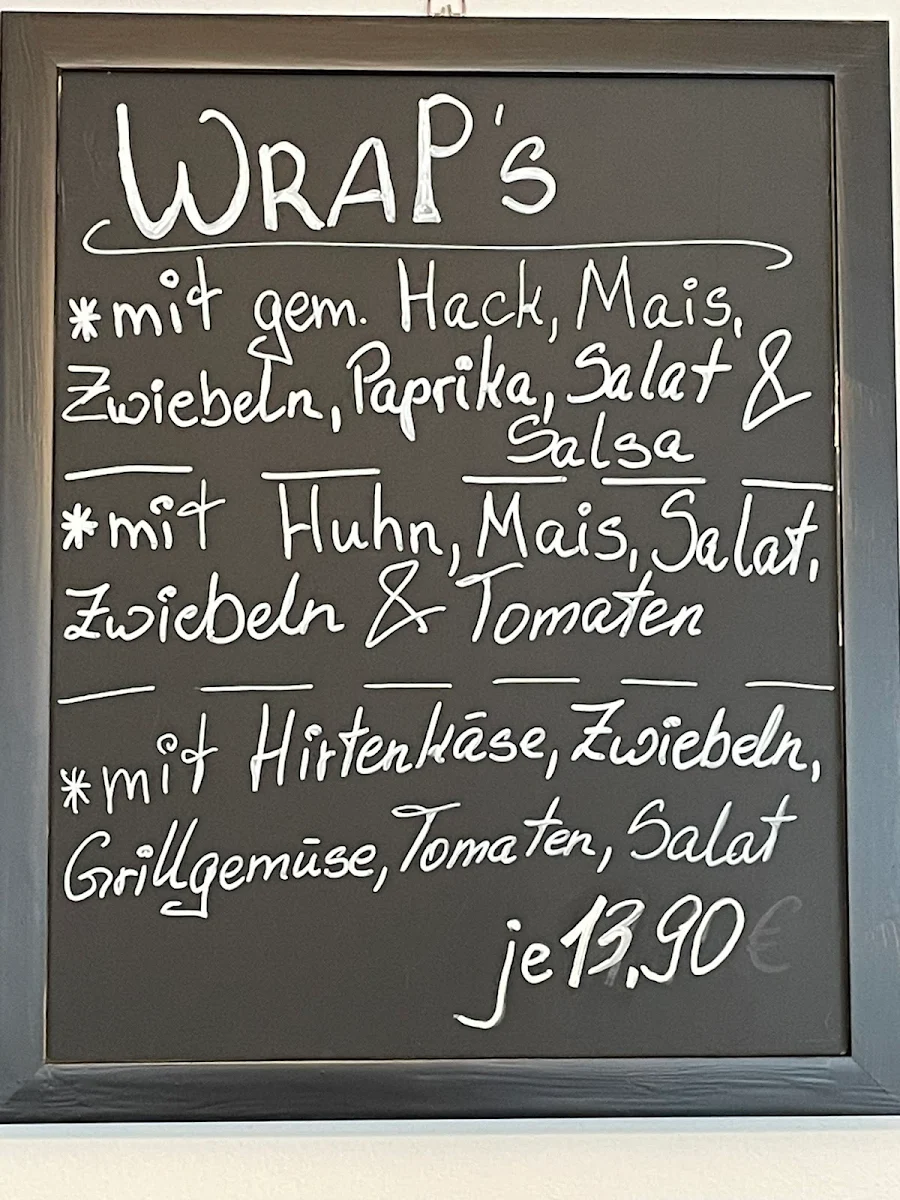 WRAP's
*mit gem. Hack, Mais,
Zwiebeln, Paprika, Salat &
Salsa
*mit Huhn, Mais, Salat,
Zwiebeln & Tomaten
*mit Hirtenkäse, Zwiebeln,
Grillgemüse, Tomaten, Salat
je 13,90 €